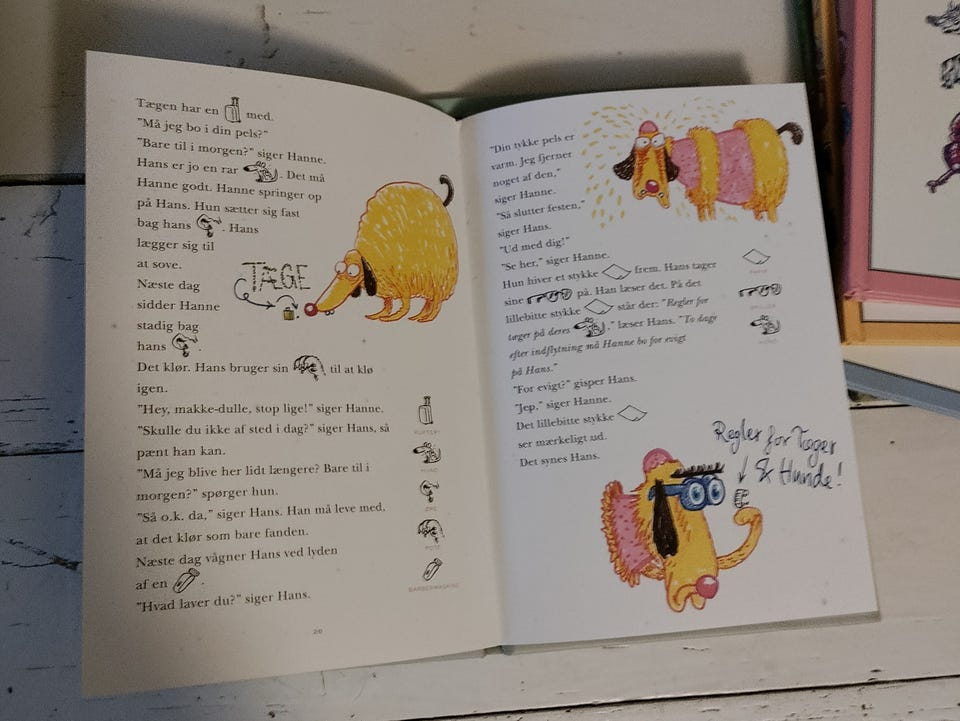 Tægen har en med.
"Må jeg bo i din pels?"
"Bare til i morgen?" siger Hanne.
Hans er jo en rar . Det må
Hanne godt. Hanne springer op
på Hans. Hun sætter sig fast
bag hans . Hans
lægger sig til
at sove.
Næste dag
sidder Hanne
stadig bag
hans .
TÆGE
Det klør. Hans bruger sin til at klø
igen.
"Hey, makke-dulle, stop lige!" siger Hanne.
"Skulle du ikke af sted i dag?" siger Hans, så
pænt han kan.
"Må jeg blive her lidt længere? Bare til i
morgen?" spørger hun.
"Så o.k. da," siger Hans. Han må leve med,
at det klør som bare fanden.
Næste dag vågner Hans ved lyden
af en .
"Hvad laver du?" siger Hans.
KUFFERT
HUND
ØRE
POTE
BARBERMASKINE
20
"Din tykke pels er
varm. Jeg fjerner
noget af den,"
siger Hanne.
"Så slutter festen,"
siger Hans.
"Ud med dig!"
"Se her," siger Hanne.
Hun hiver et stykke frem. Hans tager
sine på. Han læser det. På det
lillebitte stykke står der: "Regler for
tæger på deres ," læser Hans. "To dage
efter indflytning må Hanne bo for evigt
på Hans."
"For evigt?" gisper Hans.
"Jep," siger Hanne.
Det lillebitte stykke
ser mærkeligt ud.
Det synes Hans.
PAPIR
BRILLER
HUND
Regler for Tæger
& Hunde!